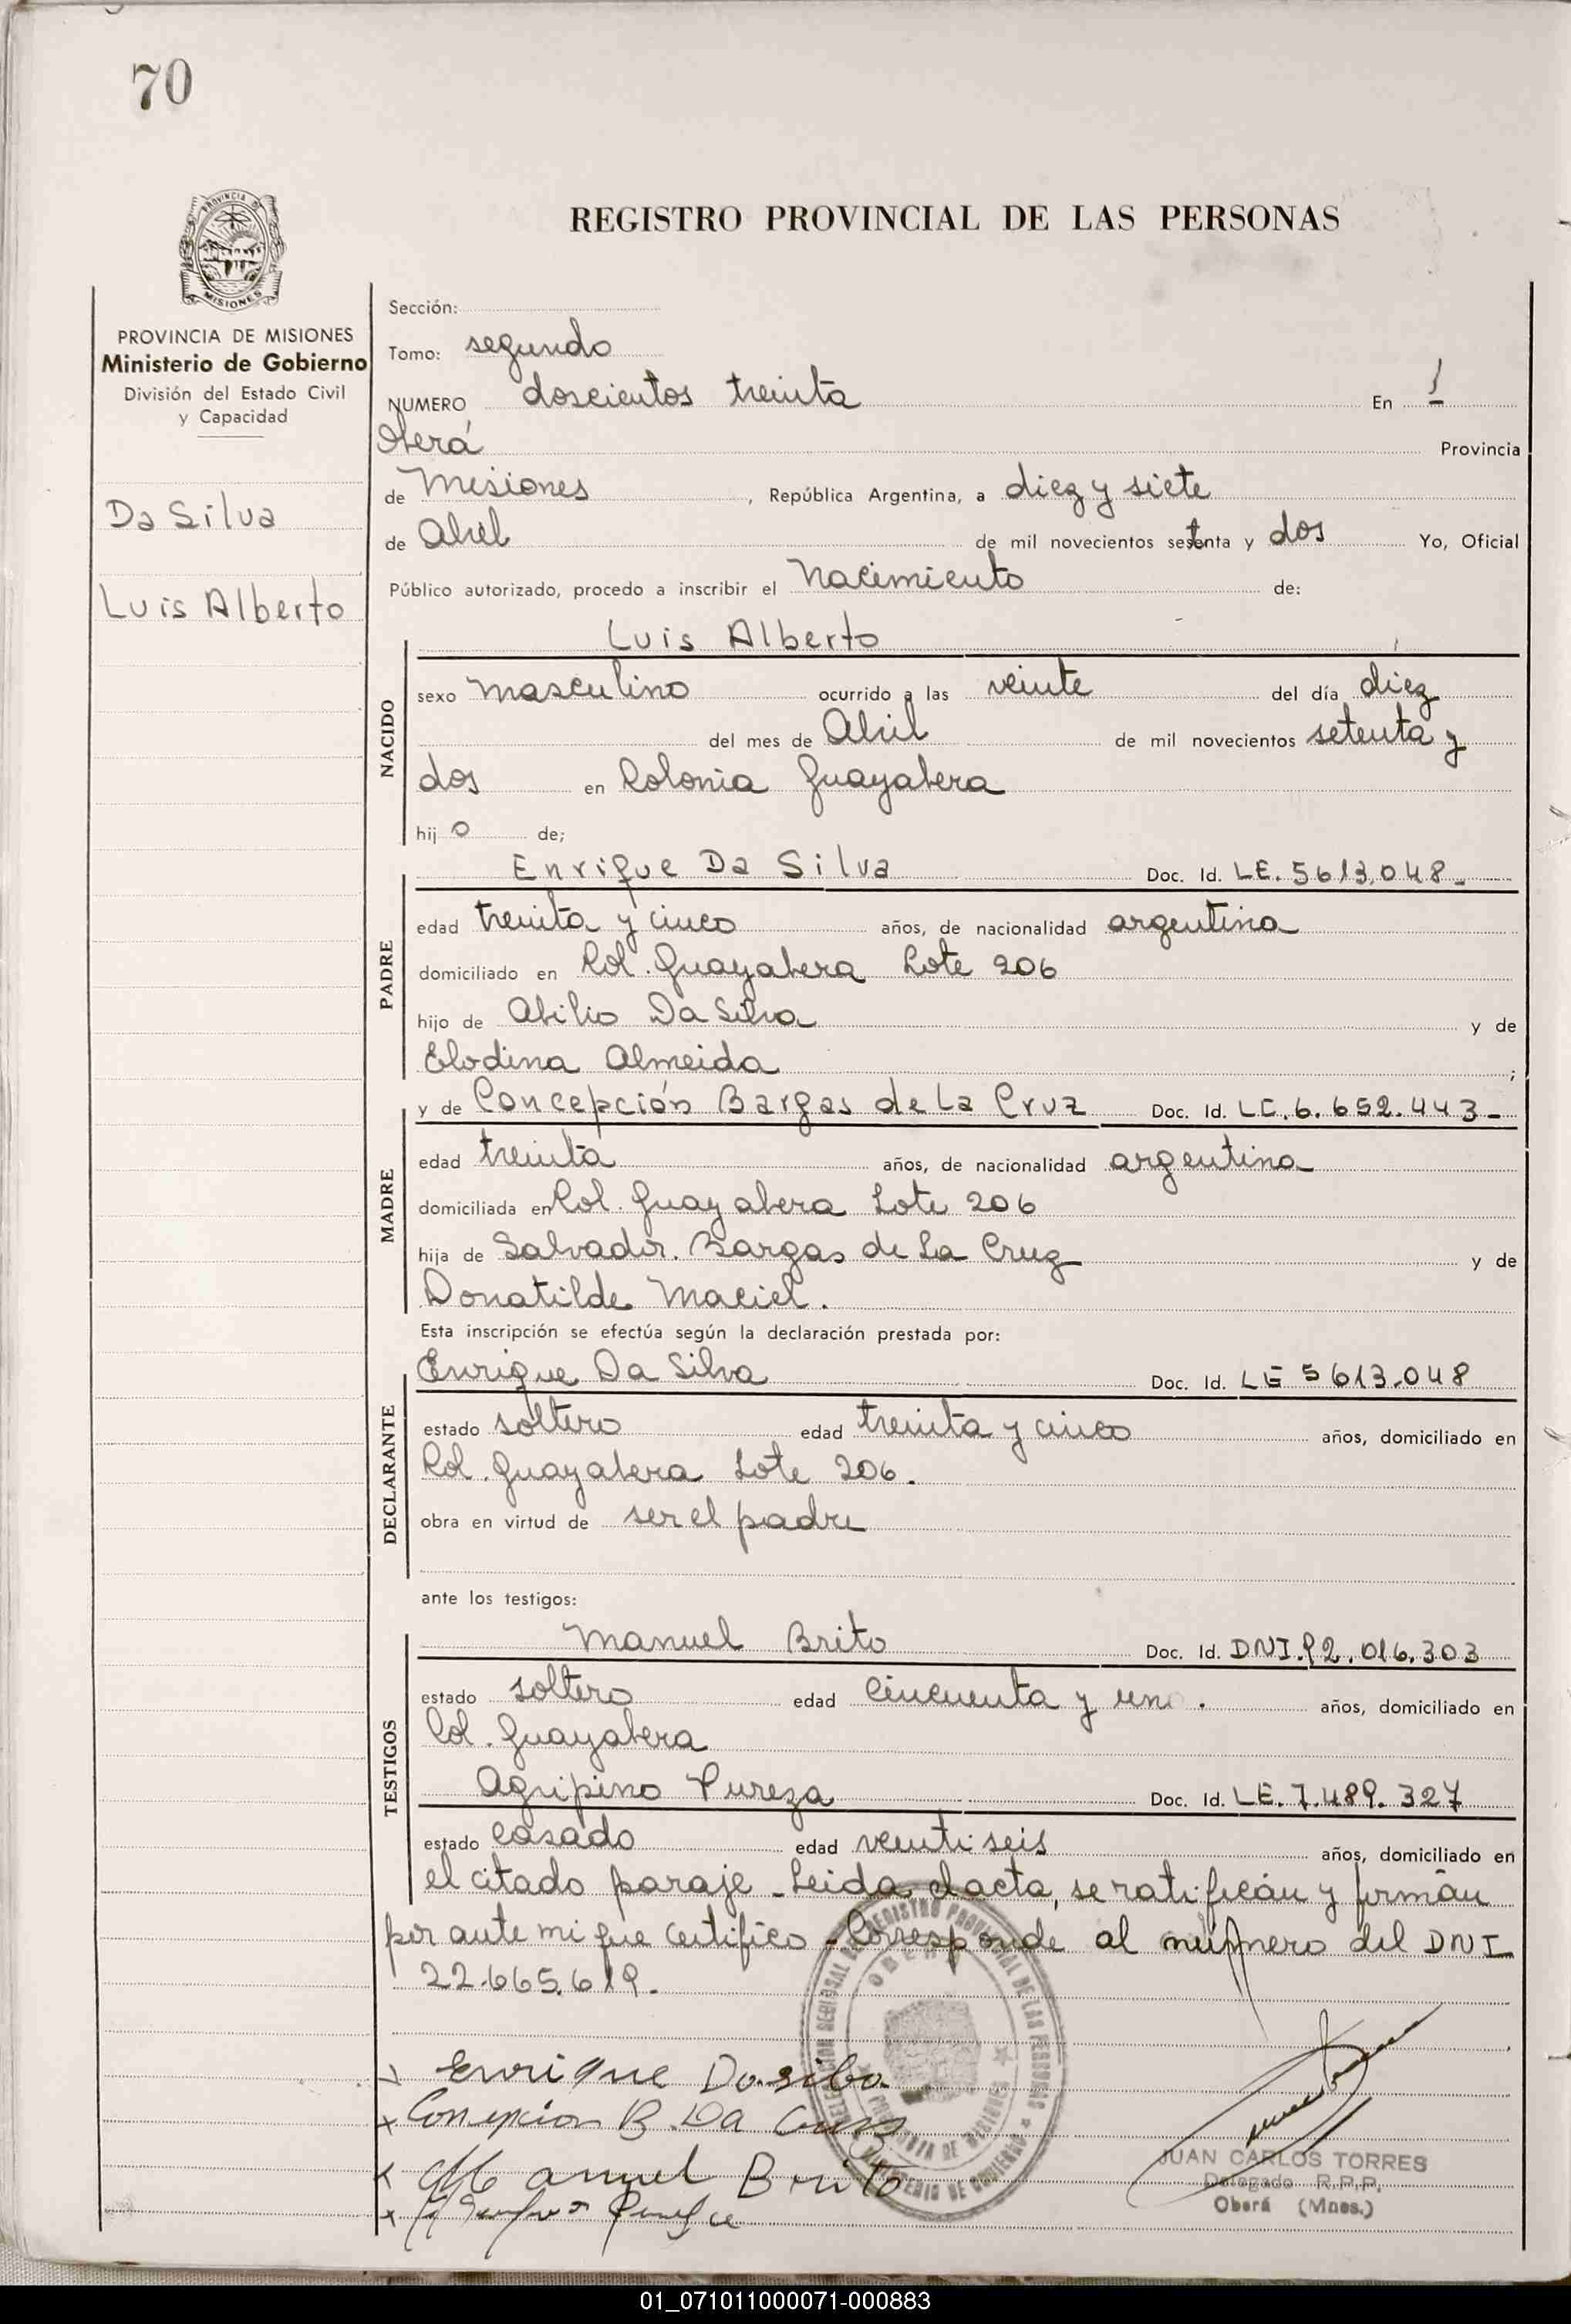 70
PROVINCIA DE
MISIONES
REGISTRO PROVINCIAL DE LAS PERSONAS
PROVINCIA DE MISIONES
Ministerio de Gobierno
División del Estado Civil
y Capacidad
Da Silva
Luis Alberto
Sección:
Tomo: segundo
NUMERO doscientos treinta En
Oberá Provincia
de Misiones, República Argentina, a diez y siete
de Abril de mil novecientos setenta y dos Yo, Oficial
Público autorizado, procedo a inscribir el Nacimiento de:
Luis Alberto
NACIDO
sexo masculino ocurrido a las veinte del día diez
del mes de Abril de mil novecientos setenta y
dos en Colonia Guayabera
hijo de;
Enrique Da Silva Doc. Id. LE. 5613.048-
PADRE
edad treinta y cinco años, de nacionalidad argentina
domiciliado en Col. Guayabera Lote 206
hijo de Abilio Da Silva y de
Elodina Almeida ;
y de Concepción Bargas de La Cruz Doc. Id. LC. 6.652.443-
MADRE
edad treinta años, de nacionalidad argentina
domiciliada en Col. Guayabera Lote 206
hija de Salvador Bargas de La Cruz y de
Donatilde Maciel.
Esta inscripción se efectúa según la declaración prestada por:
Enrique Da Silva Doc. Id. LE 5613.048
DECLARANTE
estado soltero edad treinta y cinco años, domiciliado en
Col. Guayabera Lote 206.
obra en virtud de ser el padre
ante los testigos:
Manuel Brito Doc. Id. DNI. 92.016.303
TESTIGOS
estado soltero edad cincuenta y uno. años, domiciliado en
Col. Guayabera
Agripino Pureza Doc. Id. LE. 7.489.327
estado casado edad veintiseis años, domiciliado en
el citado paraje - Leida el acta, se ratificán y firmán
por ante mi que certifico - Corresponde al número del DNI
22.665.619.
Enrique Dasilba
Concepcion B. Da Cruz
Manuel Brito
DELEGACION REGIONAL DEL REGISTRO PROVINCIAL DE LAS PERSONAS
OBERA
PROVINCIA DE MISIONES
MINISTERIO DE GOBIERNO
JUAN CARLOS TORRES
Delegado R.P.P.
Oberá (Mnes.)
01_071011000071-000883